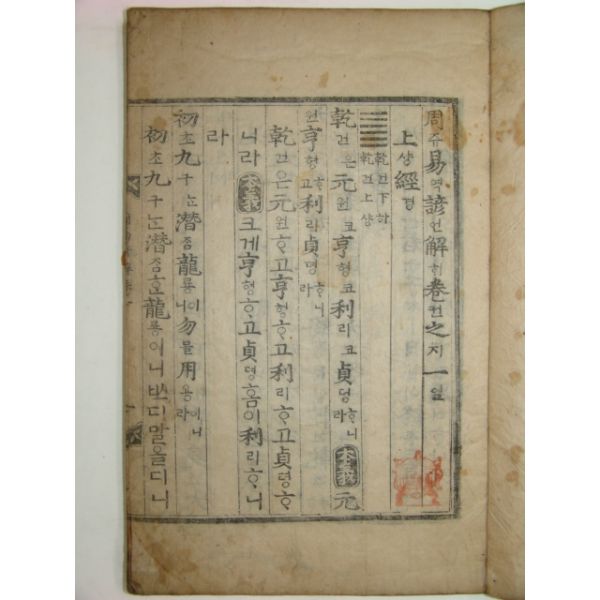 周쥬易역諺언解ᄒᆡ卷권之지一일
上샹經경
䷀乾건下하乾건上샹
乾건은元원코亨형코利리코貞뎡ᄒᆞ니라本義元
원亨형ᄒᆞ고利리貞뎡ᄒᆞ니라
乾건은元원ᄒᆞ고亨형ᄒᆞ고利리ᄒᆞ고貞뎡ᄒᆞ
니라本義크게亨형ᄒᆞ고貞뎡홈이利리ᄒᆞ니
라
初초九구ᄂᆞᆫ潛ᄌᆞᆷ龍룡이니勿믈用용이니라
初초九구ᄂᆞᆫ潛ᄌᆞᆷᄒᆞᆫ龍룡이니ᄡᅳ디말올디니